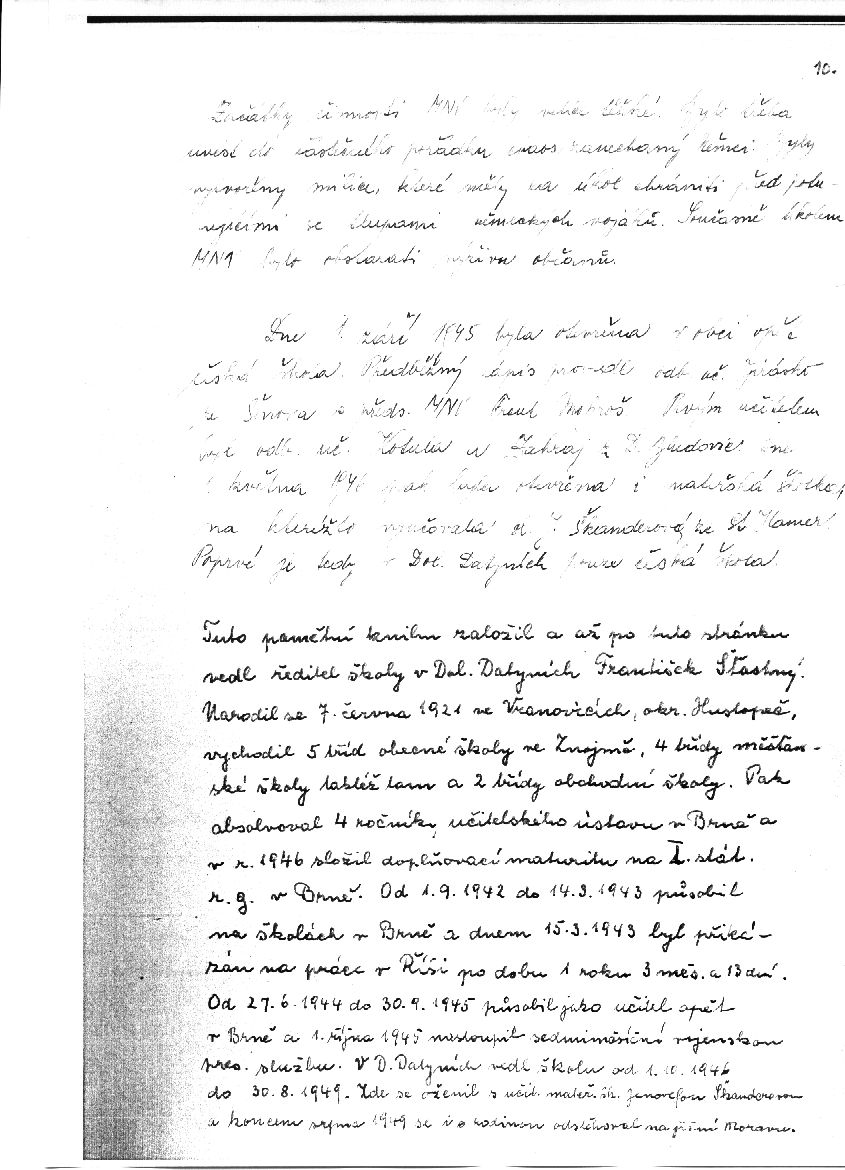 10.
Začátky činnosti MNV byly velice těžké. Bylo třeba
uvést do částečného pořádku chaos zanechaný Němci. Byly
vytvořeny milice, které měly za úkol chrániti před
se tlupami německých vojáků. Současně úkolem
MNV bylo obstarati výživu občanů.
Dne 1. září 1945 byla otevřena v obci opět
česká škola. Předběžný zápis provedl odb. uč.
ze Šenova a předs. MNV Prvým učitelem
byl odb. uč. Kotula a z D. Dne
1. května 1946 pak byla otevřena i mateřská školka,
na kteréžto vyučovala Škanderová ze St. Hamer.
Poprvé je tedy v Dol. Datyních pouze česká škola.
Tuto pamětní knihu založil a až po tuto stránku
vedl ředitel školy v Dol. Datyních František Šťastný.
Narodil se 7. června 1921 ve Vranovicích, okr. Hustopeč,
vychodil 5 tříd obecné školy ve Znojmě, 4 třídy měšťan-
ské školy taktéž tam a 2 třídy obchodní školy. Pak
absolvoval 4 ročníky učitelského ústavu v Brně a
v r. 1946 složil doplňovací maturitu na I. stát.
r. g. v Brně. Od 1.9.1942 do 14.3.1943 působil
na školách v Brně a dnem 15.3.1943 byl přiká-
zán na práce v Říši po dobu 1 roku 3 měs. a 13 dní.
Od 27.6.1944 do 30.9.1945 působil jako učitel opět
v Brně a 1. října 1945 nastoupil sedmiměsíční vojenskou
pres. službu. V D. Datyních vedl školu od 1.10.1946
do 30.8.1949. Zde se oženil s učit. mateř. šk. Jenovefou Škanderovou
a koncem srpna 1949 se i s rodinou odstěhoval na jižní Moravu.